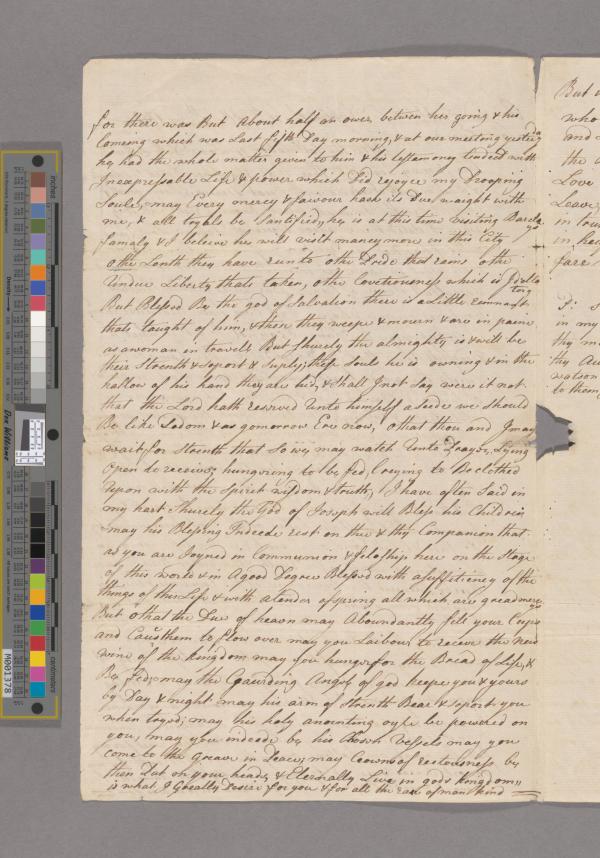 for there was But about half an ower between her going & his
Coming which was Last fifth Day morning, & at our meeting yesterda
he had the whole matter given to him & his testamoney tended with
Inexpressable Life & power which Did rejoyce my Drooping
Soule, may Every mercy & faivour have its Due waight with
me, & all toybls be Santified, he is at this time visiting Barcla
ys
famaly & I beleive he will visit maney more in this City
othe Lenth they have run to othe Pride that rains othe
Undue Liberty thats taken, othe Covetiousness which is Idolla
torg
But Blessed Be the god of Salvation there is a Little remnant
thats taught of him, & then they weepe & mourn & are in paine
as a woman in travels But Shurely the almighty is & will be
their Strenth & seport & Suply, these Souls he is owning & in the
hallow of his hand they are hid, & Shall I not Say were it not
that the Lord hath reserved Unto himself a Seede we should
Be like Sodom & as gomorrow Ere now, O that thou and I may
wait for Strenth that So we may watch Unto Prayer, Lying
open to receive; hungering to be fed, Crying to Be clothed
upon with the Spirit wisdom & truth, I have often Said in
my hart Shurely the God of Joseph will Bless his Children
may his Blessing Indeede rest on the & thy Companion that
as you are Joyned in Communion & feloship here on the Stage
of this world & in A good Degree Blessed with a suffitieney of the
things of this Life & with a tender ofspring all which are great mercy
ys
But O that the Due of heavn may Aboundantly fill your Cups
and Caus them to flow over may you Laibour to receve the New
wine of the kingdom may you hunger for the Bread of Life, &
Be fed, may the Gaurding Angel of god keepe you & yours
by Day & night may his arm of Strenth Bear & seport you
when toyed; may his holy anointing oyle be powered on
you, may you indeede be his Chosen Vessels may you
come to the Greave in Peace, may Crowns of recteousness be
then Put on your heads & Eternally Live in gods kingdom
is what I Greatly Desire for you & for all the race of man kind
But
who
and
the
Love
Leave
in
in
fare
in my
thy
thy
to them
inches
centimeters
Don Williams
M001378